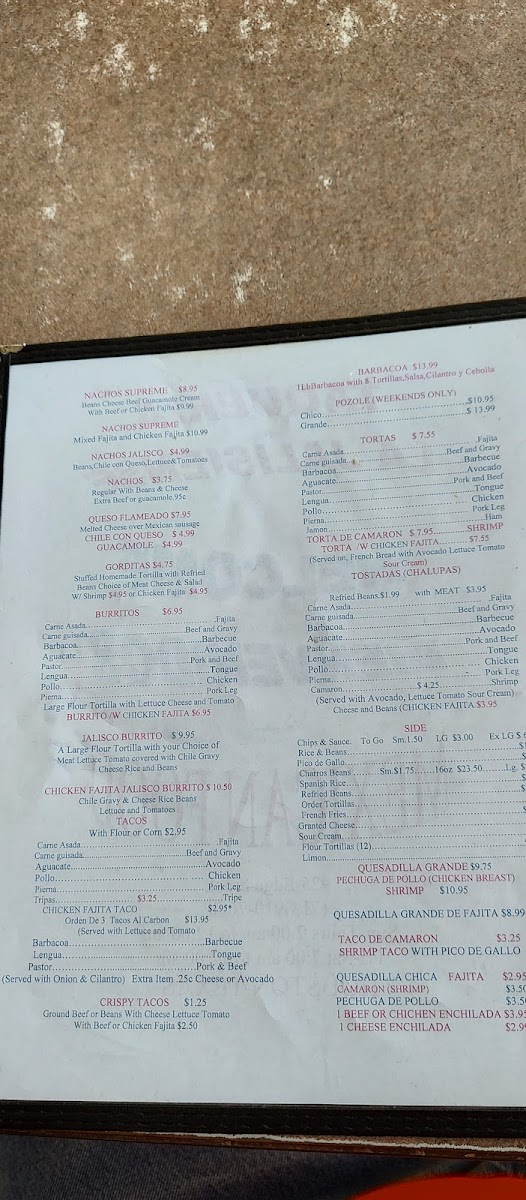 NACHOS SUPREME $8.95
Beans Cheese Beef Guacamole Cream
With Beef or Chicken Fajita $9.99
NACHOS SUPREME
Mixed Fajita and Chicken Fajita $10.99
NACHOS JALISCO $4.99
Beans,Chile con Queso,Lettuce&Tomatoes
NACHOS $3.75
Regular With Beans & Cheese
Extra Beef or guacamole.95c
QUESO FLAMEADO $7.95
Melted Cheese over Mexican sausage
CHILE CON QUESO $ 4.99
GUACAMOLE $4.99
GORDITAS $4.75
Stuffed Homemade Tortilla with Refried
Beans Choice of Meat Cheese & Salad
W/ Shrimp $4.95 or Chicken Fajita $4.95
BURRITOS $6.95
Carne Asada....Fajita
Carne guisada....Beef and Gravy
Barbacoa....Barbecue
Aguacate....Avocado
Pastor....Pork and Beef
Lengua....Tongue
Pollo....Chicken
Pierna....Pork Leg
Large Flour Tortilla with Lettuce Cheese and Tomato
BURRITO /W CHICKEN FAJITA $6.95
JALISCO BURRITO $ 9.95
A Large Flour Tortilla with your Choice of
Meat Lettuce Tomato covered with Chile Gravy
Cheese Rice and Beans
CHICKEN FAJITA JALISCO BURRITO $ 10.50
Chile Gravy & Cheese Rice Beans
Lettuce and Tomatoes
TACOS
With Flour or Corn $2.95
Carne Asada....Fajita
Carne guisada....Beef and Gravy
Aguacate....Avocado
Pollo....Chicken
Pierna....Pork Leg
Tripas....$3.25....Tripe
CHICKEN FAJITA TACO $2.95*
Orden De 3 Tacos Al Carbon $13.95
(Served with Lettuce and Tomato
Barbacoa....Barbecue
Lengua....Tongue
Pastor....Pork & Beef
(Served with Onion & Cilantro) Extra Item .25c Cheese or Avocado
CRISPY TACOS $1,25
Ground Beef or Beans With Cheese Lettuce Tomato
With Beef or Chicken Fajita $2.50
BARBACOA $13.99
1LbBarbacoa with 8 Tortillas,Salsa,Cilantro y Cebolla
POZOLE (WEEKENDS ONLY)
Chico....$10.95
Grande....$ 13.99
TORTAS $ 7.55
Carne Asada....Fajita
Carne guisada....Beef and Gravy
Barbacoa....Barbecue
Aguacate....Avocado
Pastor....Pork and Beef
Lengua....Tongue
Pollo....Chicken
Pierna....Pork Leg
Jamon....Ham
TORTA DE CAMARON $ 7.95....SHRIMP
TORTA /W CHICKEN FAJITA....$7.55
(Served on, French Bread with Avocado Lettuce Tomato
Sour Cream)
TOSTADAS (CHALUPAS)
Refried Beans.$1.99 with MEAT $3.95
Carne Asada....Fajita
Carne guisada....Beef and Gravy
Barbacoa....Barbecue
Aguacate....Avocado
Pastor....Pork and Beef
Lengua....Tongue
Pollo....Chicken
Pierna....Pork Leg
Camaron....$ 4.25....Shrimp
(Served with Avocado, Lettuce Tomato Sour Cream)
Cheese and Beans (CHICKEN FAJITA $3.95
SIDE
Chips & Sauce. To Go Sm.1.50 LG $3.00 Ex LG $
Rice & Beans....
Pico de Gallo....
Charros Beans....Sm.$1.75....16oz $23.50....Lg.
Spanish Rice....
Refried Beans....
Order Tortillas....
French Fries....
Granted Cheese....
Sour Cream....
Flour Tortillas (12)....
Limon....
QUESADILLA GRANDE $9.75
PECHUGA DE POLLO (CHICKEN BREAST)
SHRIMP $10.95
QUESADILLA GRANDE DE FAJITA $8.99
TACO DE CAMARON $3.25
SHRIMP TACO WITH PICO DE GALLO
QUESADILLA CHICA FAJITA $2.95
CAMARON (SHRIMP) $3.50
PECHUGA DE POLLO $3.5
1 BEEF OR CHICHEN ENCHILADA $3.95
1 CHEESE ENCHILADA $2.9